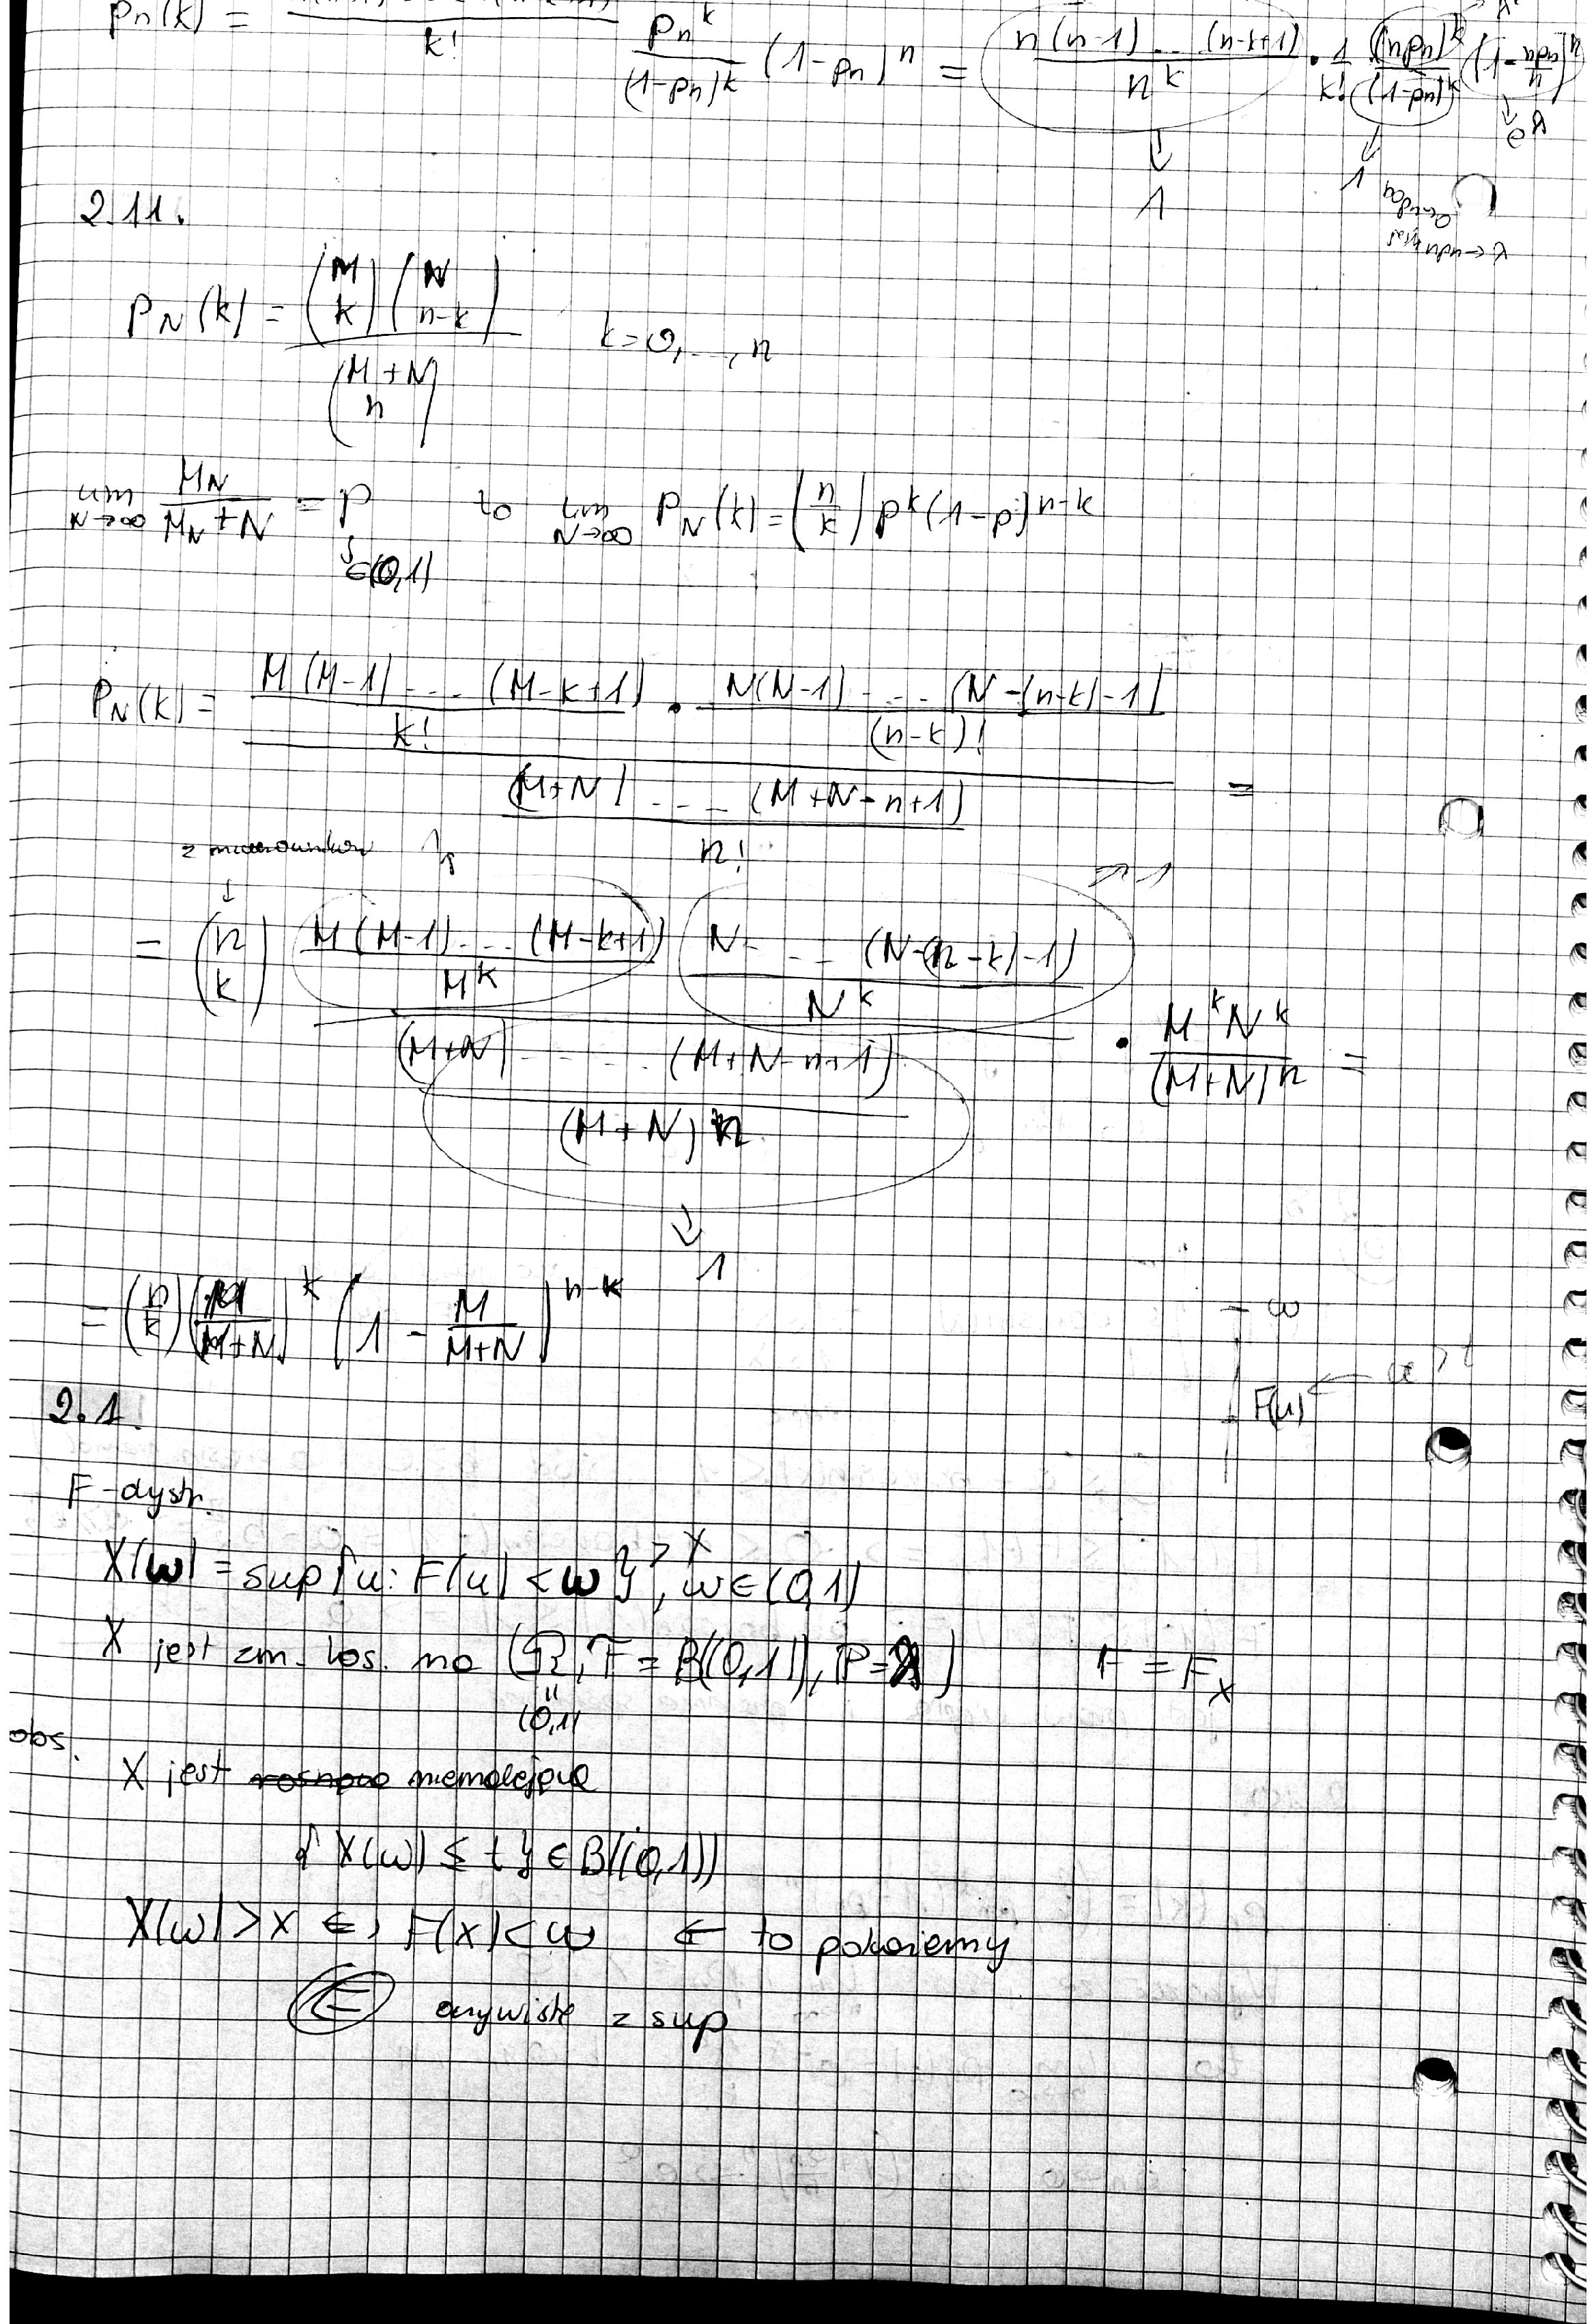 pn(k) = k! pn^k/(1-pn)^k (1-pn)^n = n(n-1)...(n-k+1)/n^k · 1/k! (npn)^k/(1-pn)^k (1-npn/n)^n
↓ 1
↓ 1
2.11.
PN(k) = (M k)(N n-k)/(M+N n) k=0,...,n
lim N→∞ MN/(MN+N) = p to lim N→∞ PN(k) = (n k) p^k (1-p)^n-k
∈(0,1)
PN(k) = M(M-1)...(M-k+1)/k! · N(N-1)...(N-(n-k)-1)/(n-k)! / (M+N)...(M+N-n+1)/n! =
z mianowników
↓ →1
= (n k) M(M-1)...(M-k+1)/M^k N...(N-(n-k)-1)/N^k / (M+N)...(M+N-n+1)/(M+N)n · M^k N^k/(M+N)^n =
↓
1
= (n k) (M/(M+N))^k (1 - M/(M+N))^n-k
ω
F(u) ←
2.1.
F-dystr.
X(ω) = sup{u: F(u) < ω}, ω∈(0,1)
> x
X jest zm. los. na (Ω, F = B((0,1)), P=λ) F = Fx
"
(0,1)
obs.
X jest rosnąca niemalejąca
{X(ω) ≤ t} ∈ B((0,1))
X(ω) > x ⇔ F(x) < ω ← to pokażemy
⇐ oczywiste z sup